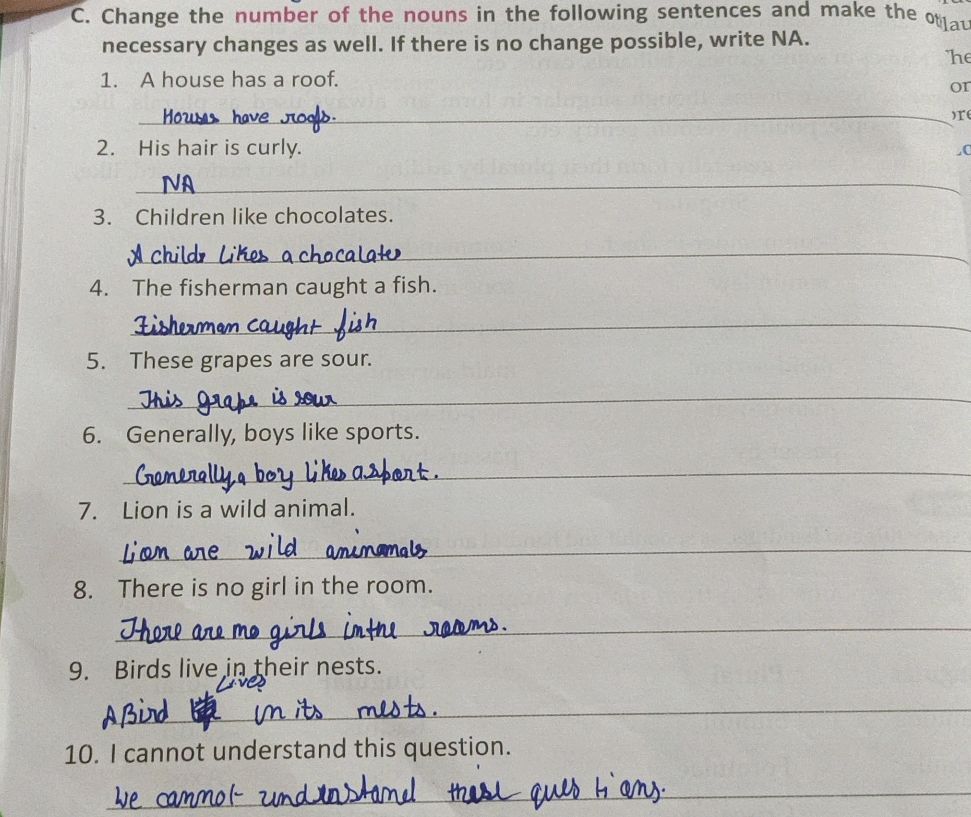 C. Change the number of the nouns in the following sentences and make the
necessary changes as well. If there is no change possible, write NA.
1. A house has a roof.
Houses have roofs.
2. His hair is curly.
NA
3. Children like chocolates.
A child likes a chocalates
4. The fisherman caught a fish.
Fisherman caught fish
5. These grapes are sour.
This grape is sour
6. Generally, boys like sports.
Generally, a boy likes a sport.
7. Lion is a wild animal.
Lion are wild aninamals
8. There is no girl in the room.
There are no girls in the rooms.
9. Birds live in their nests.
Lives
A Bird in its nests.
10. I cannot understand this question.
We cannot understand these questions.